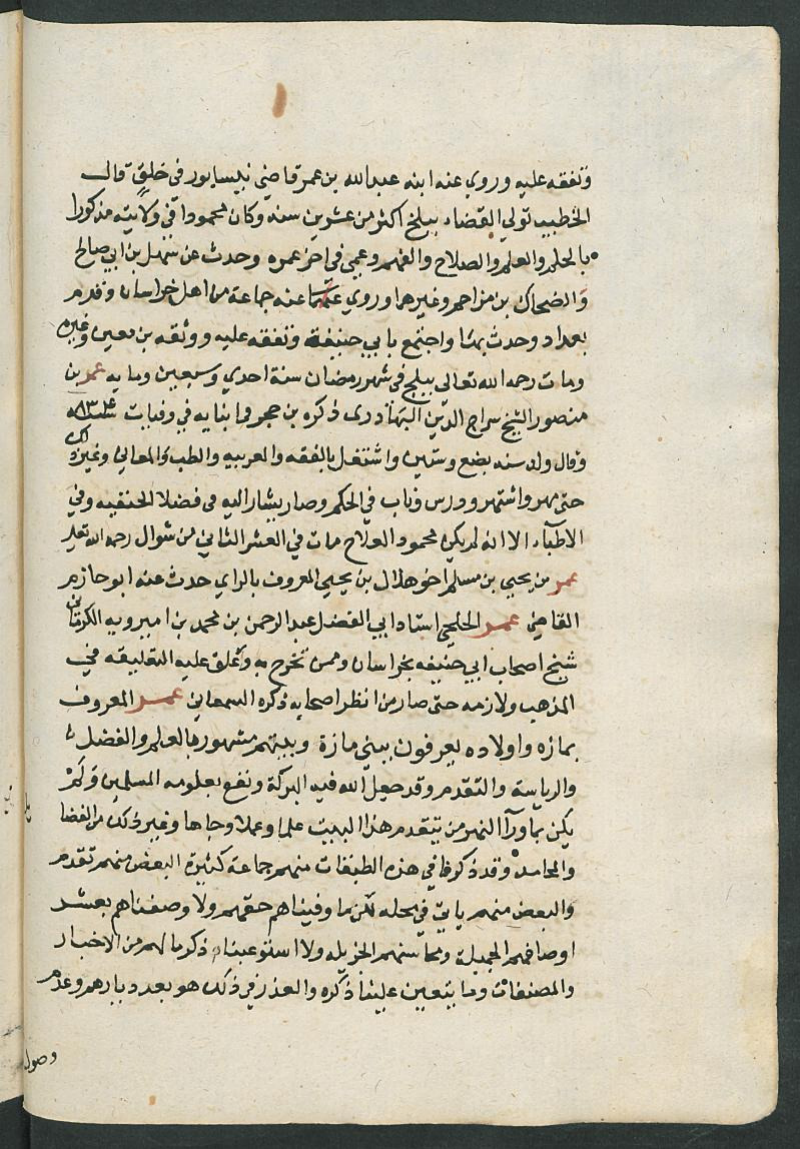 وتفقه عليه وروي عنه ابنه عبدالله بن عمر قاضي نيسابور في خلق قال
الخطيب تولي القضاء ببلخ اكثر من عشرين سنه وكان محمودا في ولايته مذكورا
بالحلم والعلم والصلاح والفهم وعمي في اخر عمره وحدث عن سهل بن ابي صالح
والضحاك بن مزاحم وغيرهما وروي عنه جماعة من اهل خراسان وقدم
بغداد وحدث بها واجتمع بابي حنيفة وتفقه عليه ووثقه بن معين وغيره
ومات رحمه الله تعالى ببلخ في شهر رمضان سنة احدي وسبعين ومايه عمر بن
منصور الشيخ سراج الدين البهادري ذكره بن حجر وما بنايه في وفيات سنة ٨٣٤
وقال ولد سنه بضع وستين واشتغل بالفقه والعربيه والطب والمعاني وغير ذلك
حتى مهر واشتهر ودرس وناب في الحكم وصار يشار اليه في فضلا الحنفيه وفي
الاطباء الا انه لم يكن محمود العلاج مات في العشر الثاني من شوال رحمه الله تعلي
عمر بن يحيي بن مسلم اخو هلال بن يحيي المعروف بالراي حدث عنه ابو حازم
القاضي عمر الحلجي استاد ابي الفضل عبدالرحمن بن محمد بن اميرويه الكرماني
شيخ اصحاب ابي حنيفه بخراسان وممن تخرج به وعلق عليه التعليقه في
المذهب ولازمه حتى صار من انظر اصحابه ذكره السمعاني عمر المعروف
بمازه واولاده يعرفون ببني مازة وبيتهم مشهور بالعلم والفضل
والرياسة والتقدم وقد جعل الله فيه البركة ونفع بعلومه المسلمين ولم
يكن بماورآ النهر من يتقدم هذا البيت علما وعملا وجاها وغير ذلك من الفضا
والمحامد وقد ذكرنا في هذه الطبقات منهم جماعة كثيرة البعض منهم تقدم
والبعض منهم ياتي في محله لكن ما وفيناهم حقهم ولا وصفناهم بعشر
اوصافهم الجميلة ومحاسنهم الجزيله ولا استوعبنا ذكر ما لهم من الاخبار
والمصنفات وما يتعين علينا ذكره والعذر في ذلك هو بعد ديارهم وعدم
وصول